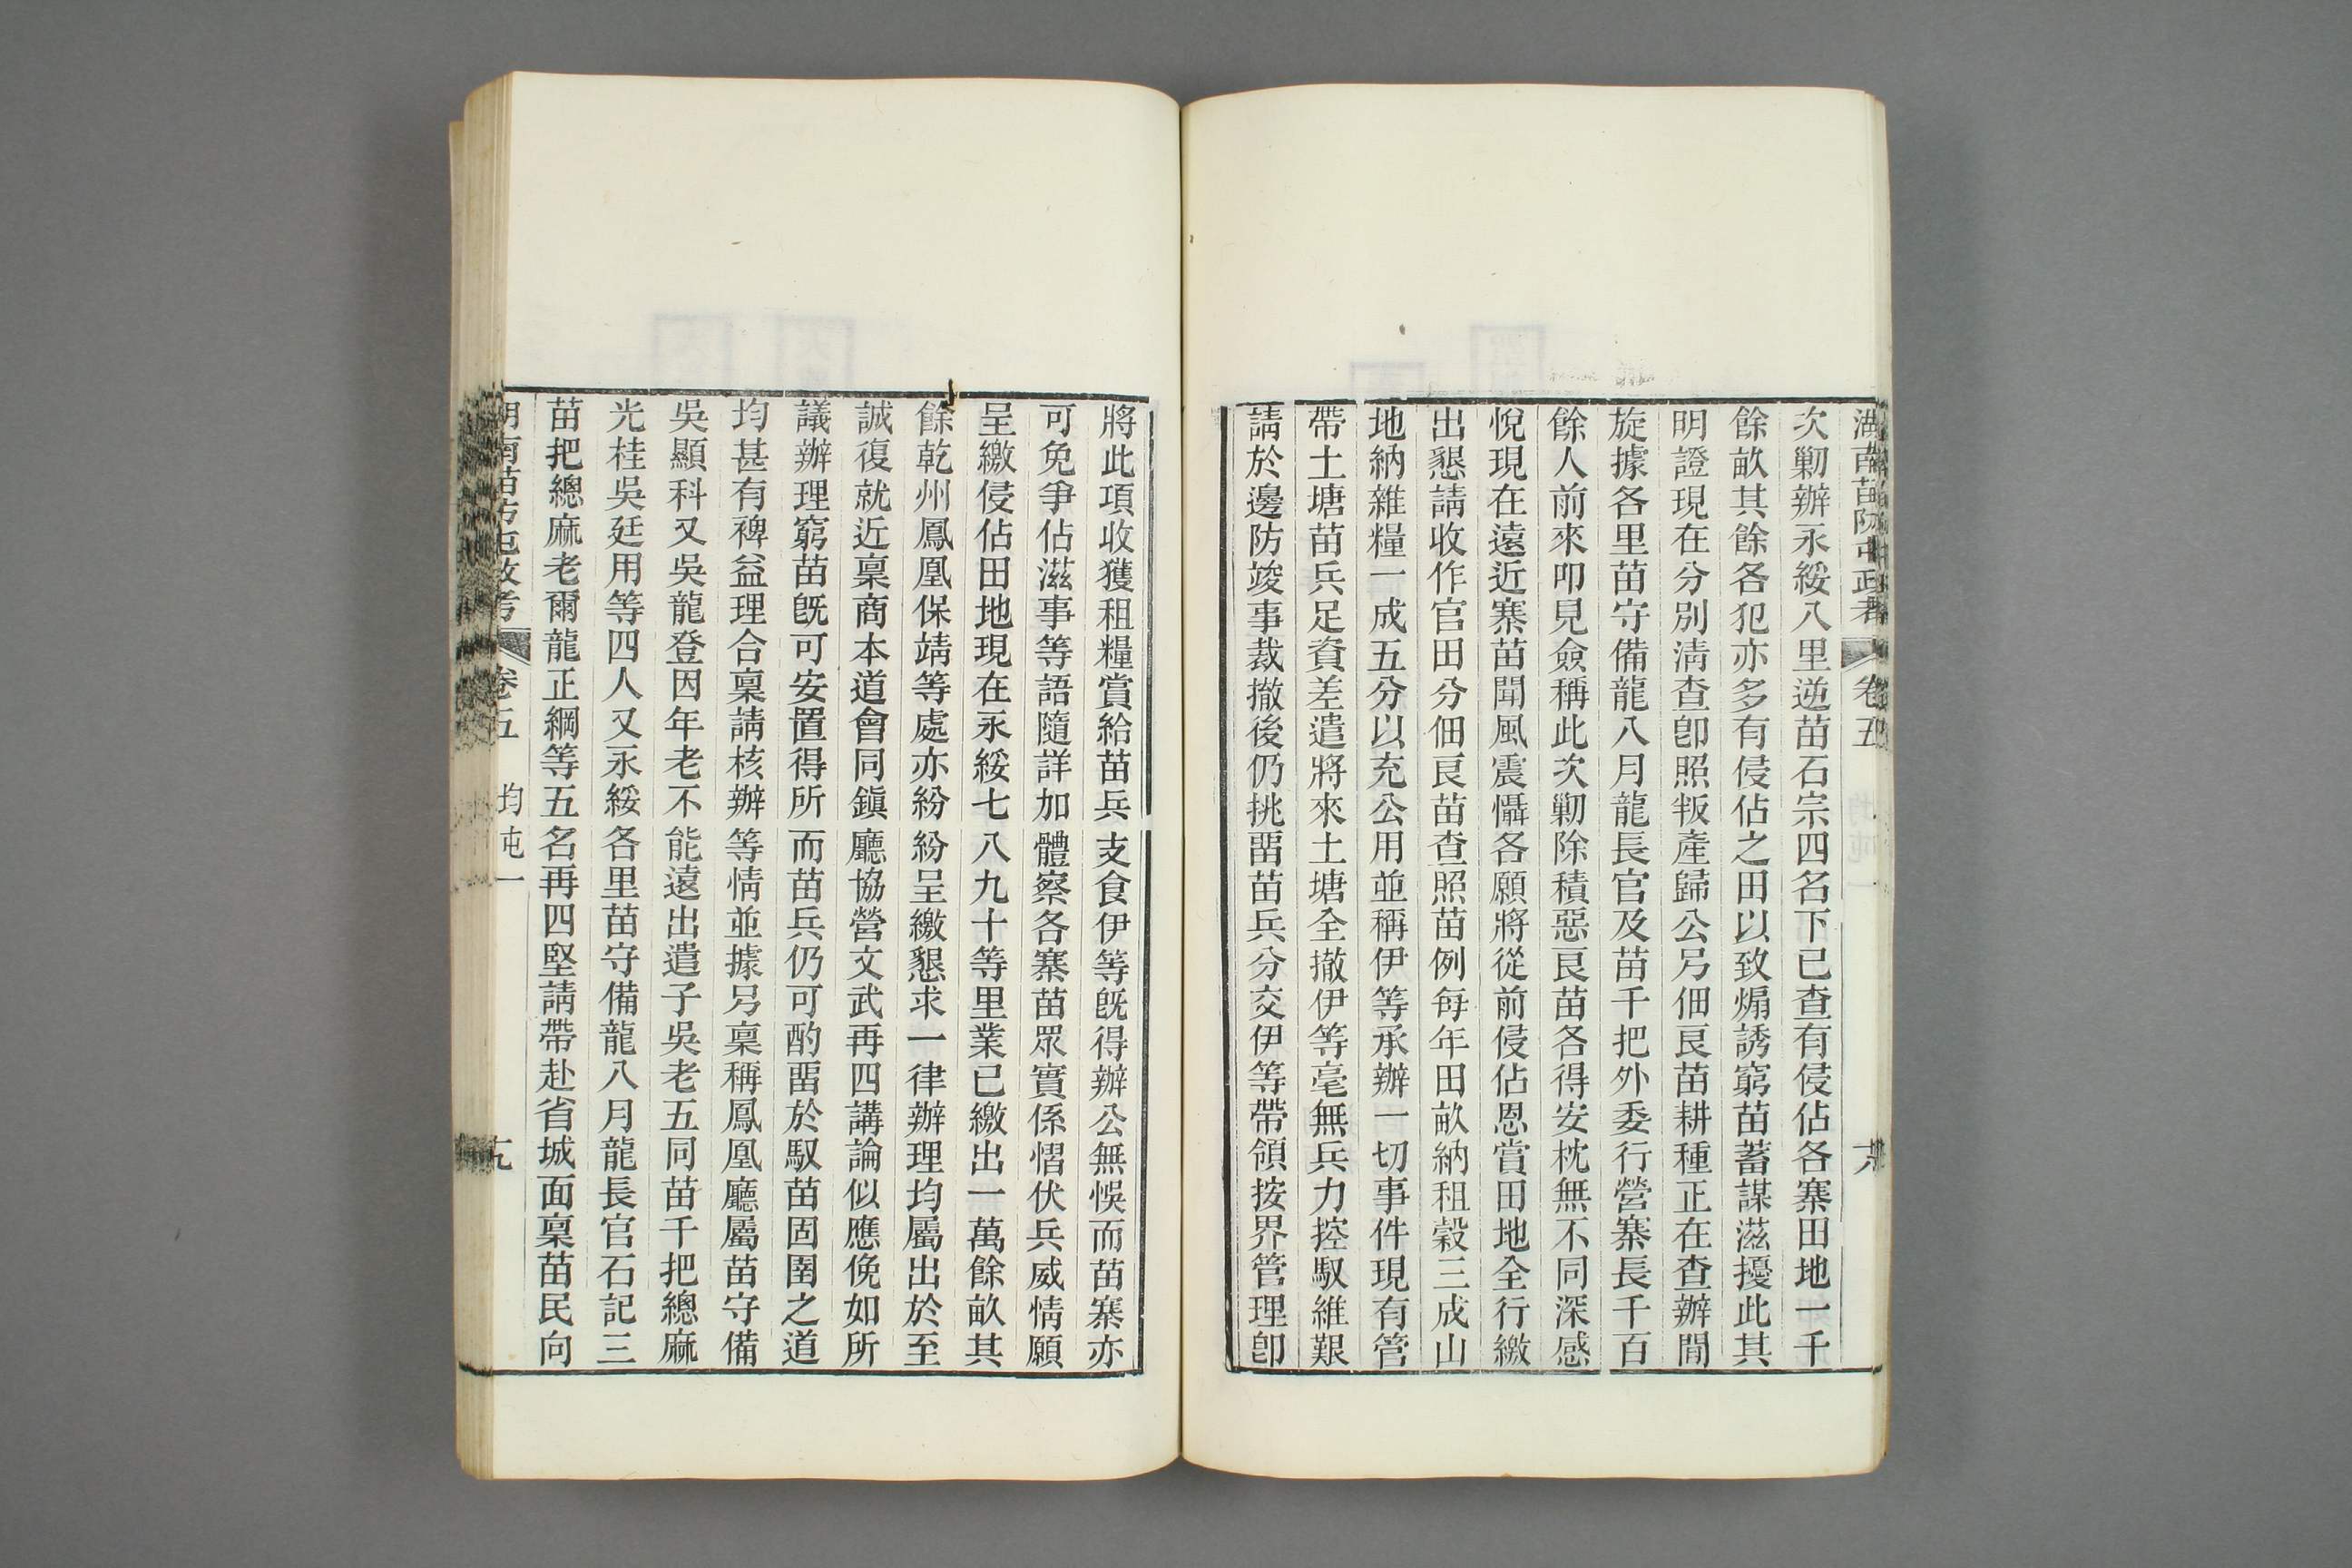 湖南苗防屯政考 卷五 十八
次勦辦永綏八里逆苗石宗四名下已查有侵佔各寨田地一千
餘畝其餘各犯亦多有侵佔之田以致煽誘窮苗蓄謀滋擾此其
明證現在分別清查卽照叛產歸公另佃良苗耕種正在查辦閒
旋據各里苗守備龍八月龍長官及苗千把外委行營寨長千百
餘人前來叩見僉稱此次勦除積惡良苗各得安枕無不同深感
悅現在遠近寨苗聞風震懾各願將從前侵佔恩賞田地全行繳
出懇請收作官田分佃良苗查照苗例每年田畝納租穀三成山
地納雜糧一成五分以充公用並稱伊等承辦一切事件現有管
帶土塘苗兵足資差遣將來土塘全撤伊等毫無兵力控馭維艱
請於邊防竣事裁撤後仍挑畱苗兵分交伊等帶領按界管理卽
將此項收獲租糧賞給苗兵支食伊等旣得辦公無悞而苗寨亦
可免爭佔滋事等語隨詳加體察各寨苗眾實係慴伏兵威情願
呈繳侵佔田地現在永綏七八九十等里業已繳出一萬餘畝其
餘乾州鳳凰保靖等處亦紛紛呈繳懇求一律辦理均屬出於至
誠復就近稟商本道會同鎮廳協營文武再四講論似應俛如所
議辦理窮苗旣可安置得所而苗兵仍可酌畱於馭苗固圉之道
均甚有裨益理合稟請核辦等情並據另稟稱鳳凰廳屬苗守備
吳顯科又吳龍登因年老不能遠出遣子吳老五同苗千把總麻
光桂吳廷用等四人又永綏各里苗守備龍八月龍長官石記三
苗把總麻老爾龍正綱等五名再四堅請帶赴省城面稟苗民向
湖南苗防屯政考 卷五 均屯一 十九